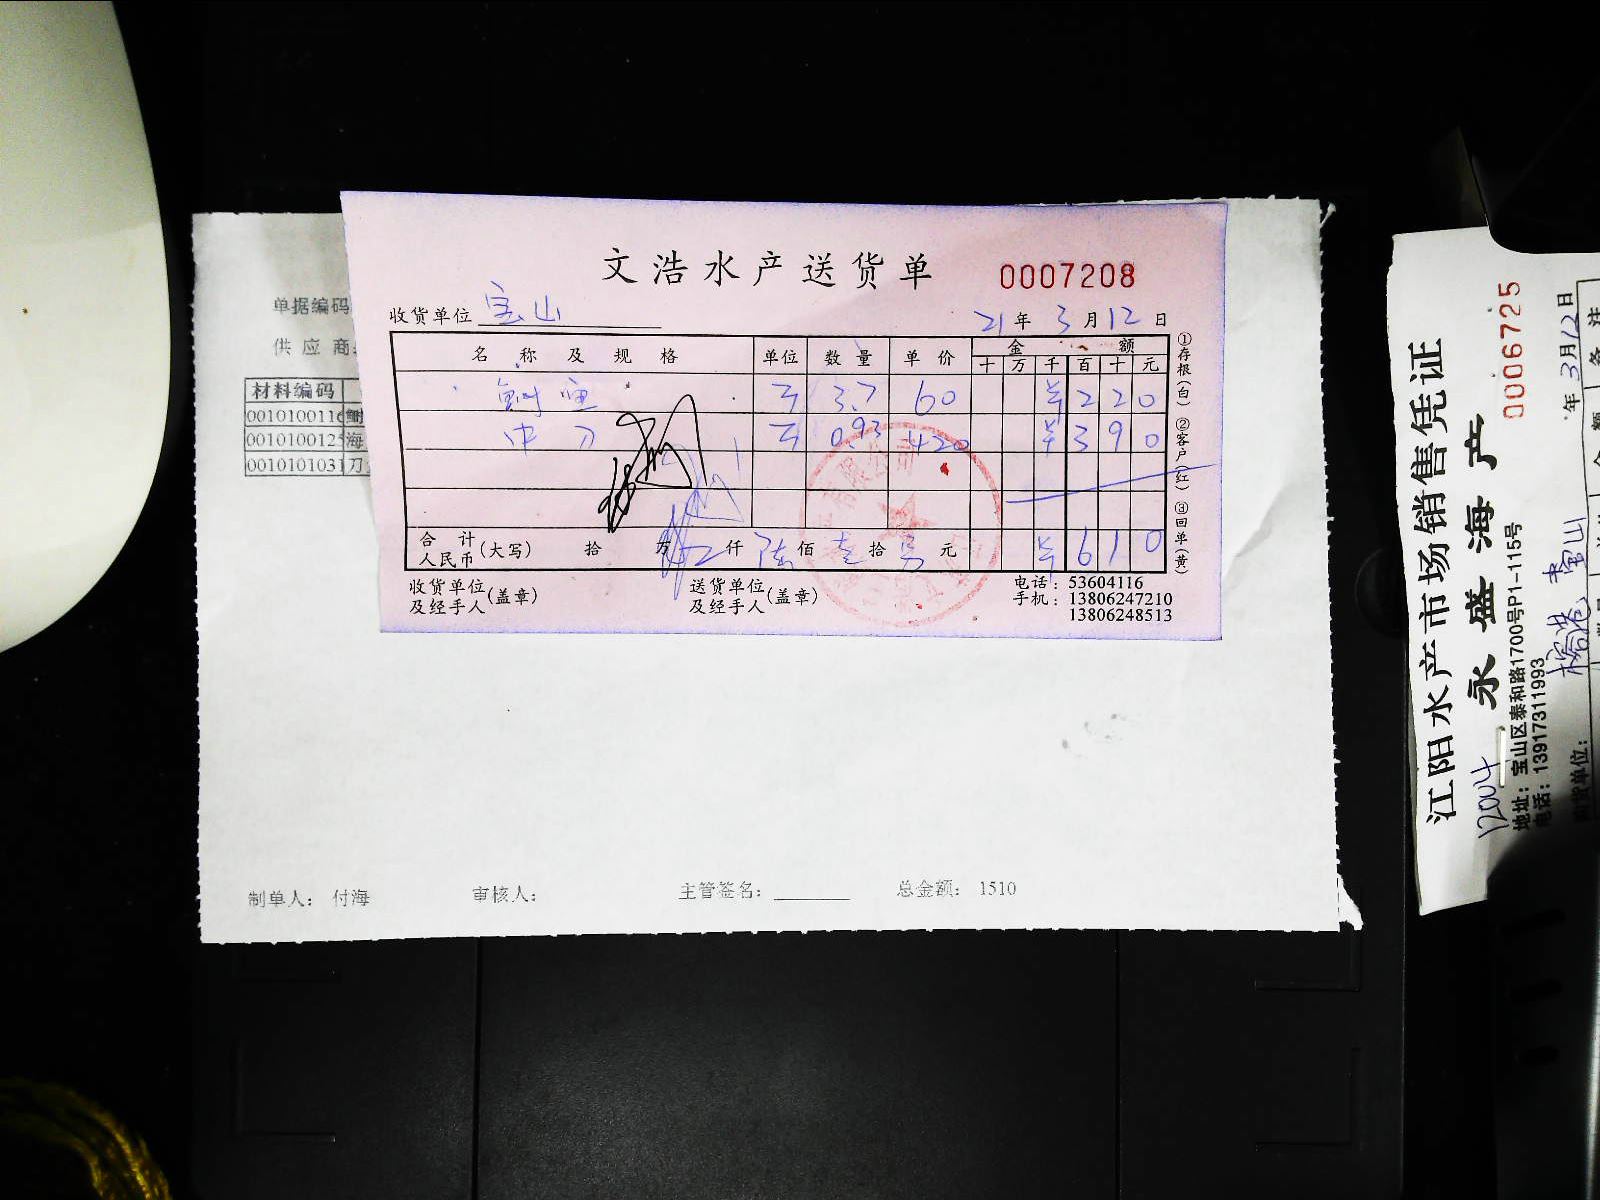 文浩水产送货单 0007208
收货单位 宝山 21年3月12日
名称及规格 单位 数量 单价 金额
十 万 千 百 十 元
鲥鱼 斤 3.7 60 ¥220
中刀 斤 0.93 420 ¥390
合计人民币(大写) 拾 万 仟 陆佰壹拾 元 ¥610
收货单位及经手人(盖章) 送货单位及经手人(盖章) 电话：53604116
手机：13806247210
13806248513
①存根(白) ②客户(红) ③回单(黄)
单据编码
供应商
材料编码
0010100116
0010100125 海
0010101031 刀
制单人： 付海 审核人： 主管签名： 总金额： 1510
江阳水产市场销售凭证
永盛海产 0006725
地址：宝山区泰和路1700号P1-115号
电话：13917311993
年3月12日
宝山
备注